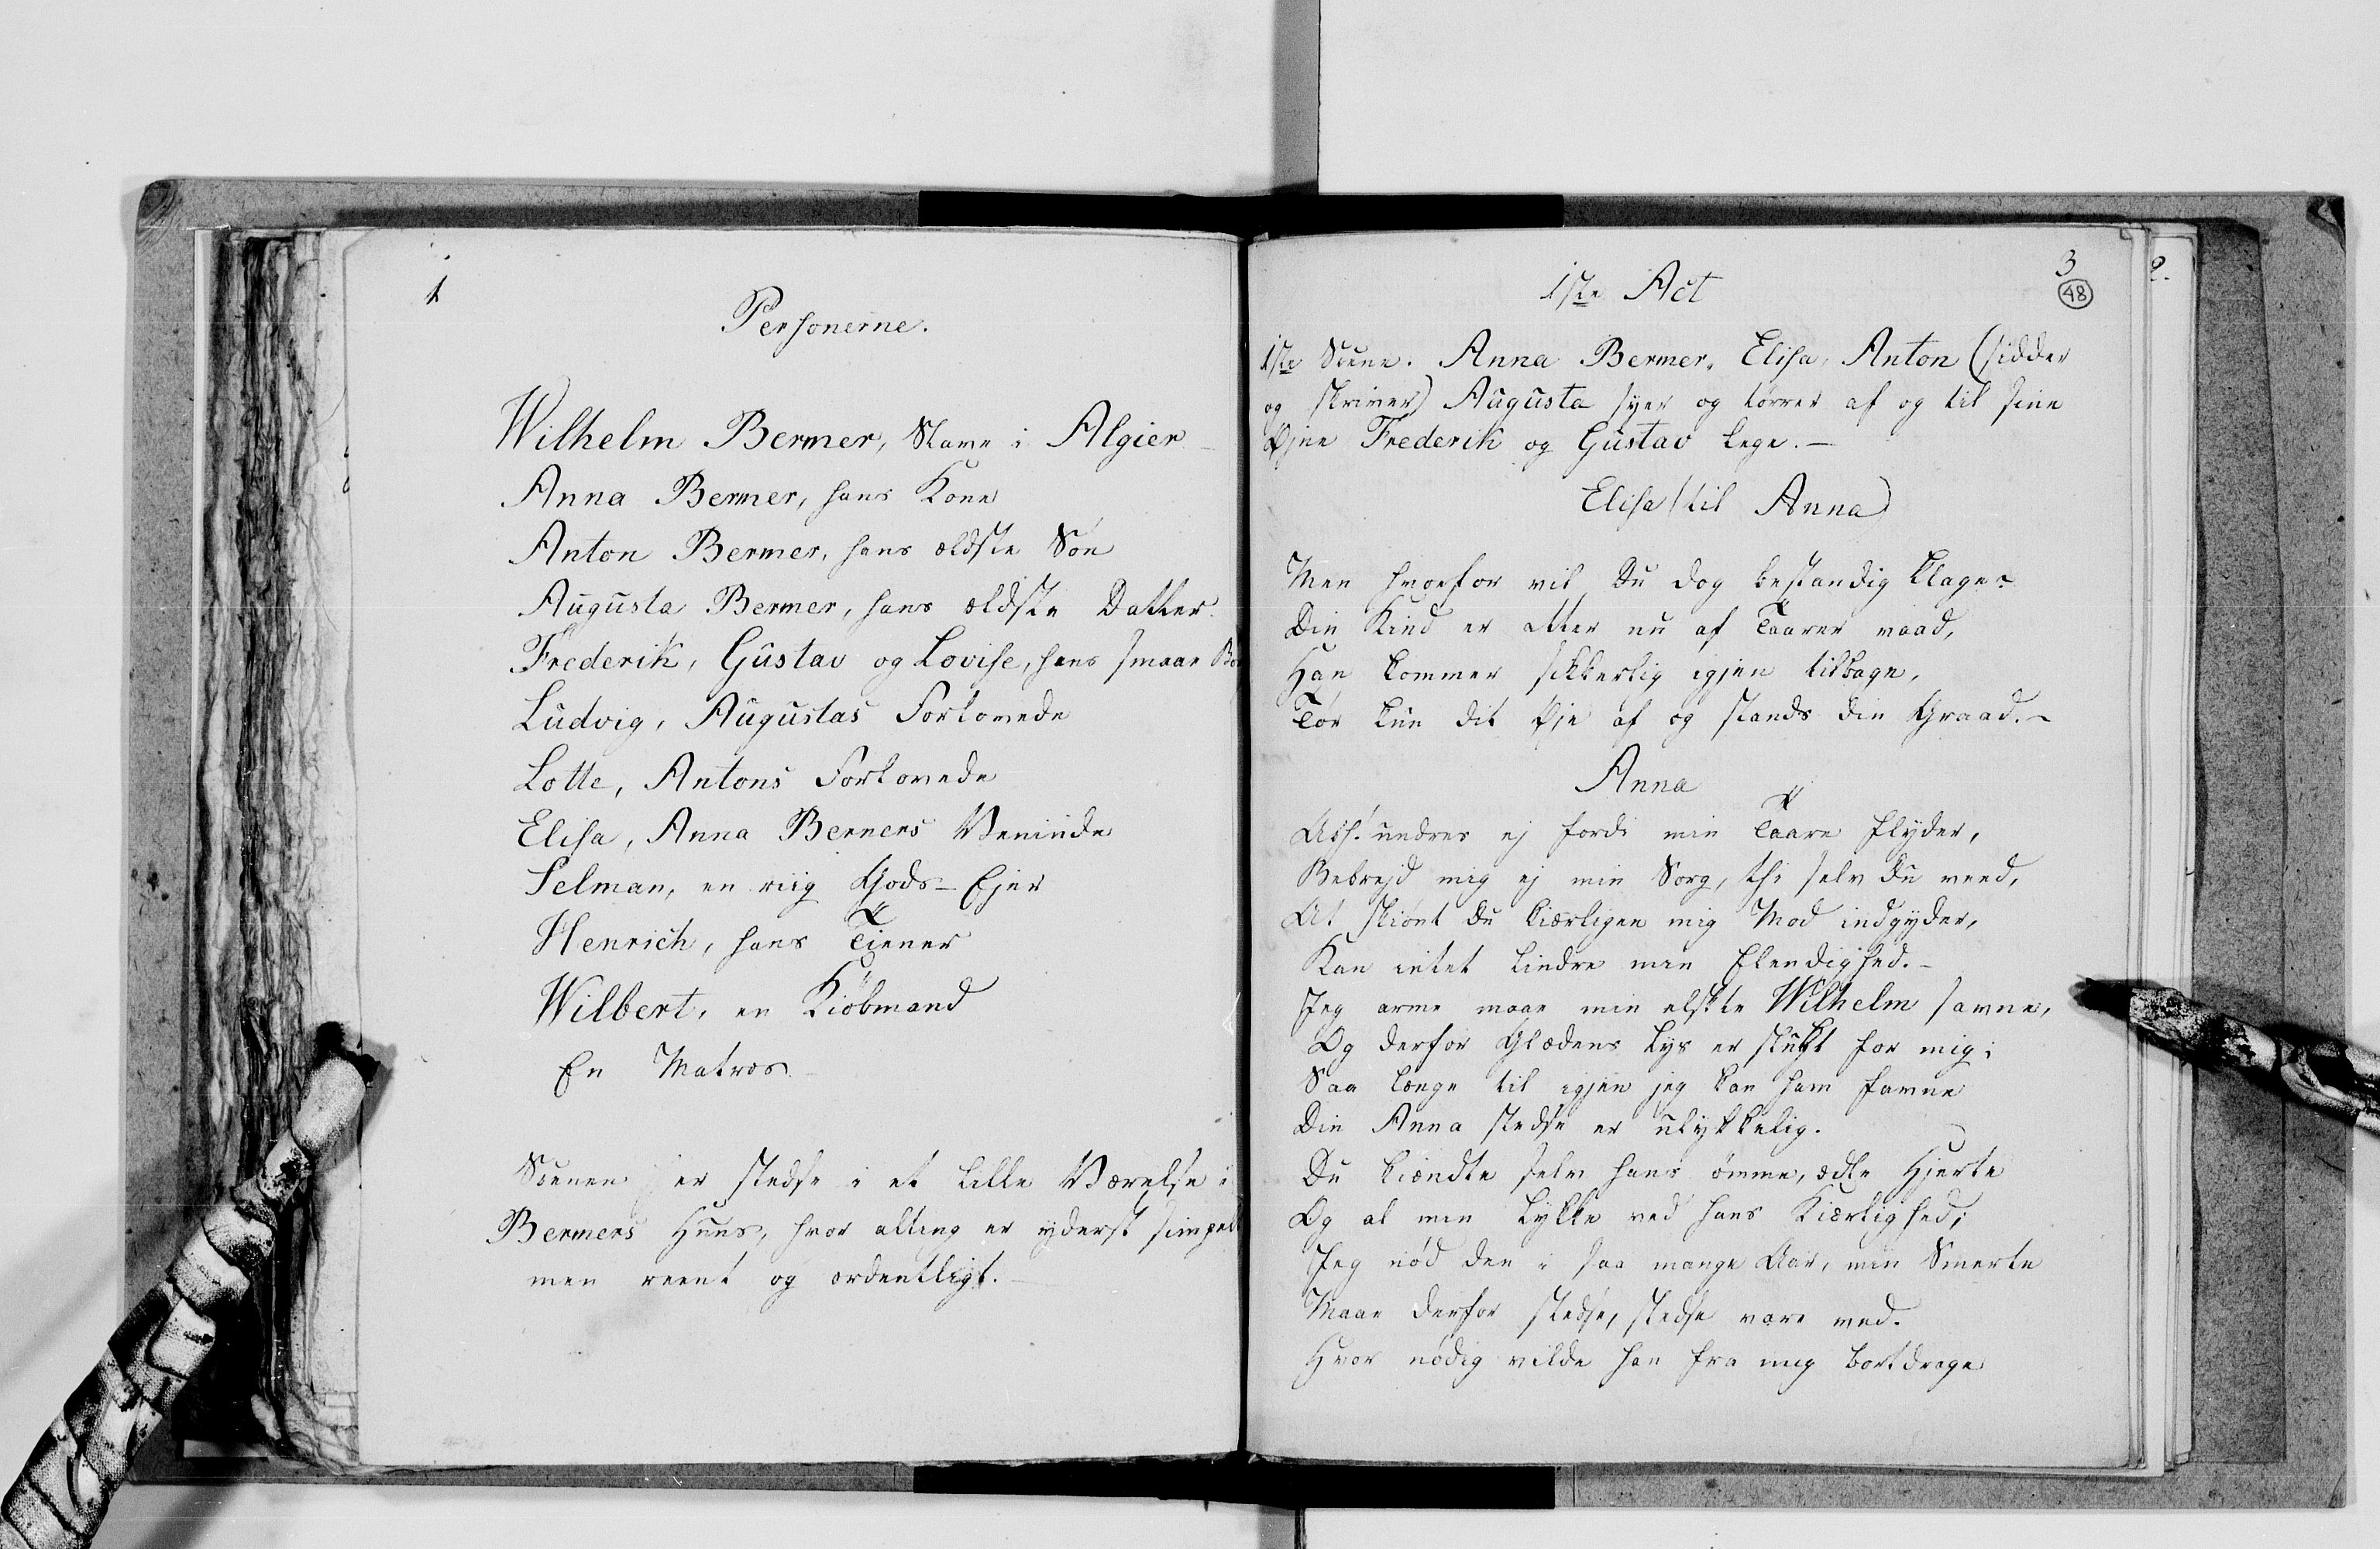 1
Personerne.
Wilhelm Bermer, Slave i Algier
Anna Bermer, hans Kone
Anton Bermer, hans ældste Søn
Augusta Bermer, hans ældste Datter.
Frederik, Gustav og Lovise, hans smaae
Ludvig, Augustas Forlovede
Lotte, Antons Forlovede
Elisa, Anna Bermers Veninde
Selman, en riig Gods-Ejer
Henrich, hans Tiener
Wilbert, en Kiøbmand
En Matros.
Scenen er stedse i et lille Værelse i
Bermers Huus, hvor alting er yderst simpelt
men reent og ordentligt.
3
48
2.
1ste Act
1ste Scene. Anna Bermer, Elisa, Anton (sidder
og skriver) Augusta syer og tørrer af og til sine
Øjne Frederik og Gustav lege.—
Elisa (til Anna)
Men hvorfor vil Du dog bestandig klage?
Din Kind er atter nu af Taarer vaad,
Han kommer sikkerlig igjen tilbage,
Tør kun dit Øje af og stands din Graad.—
Anna
Ach! undres ej fordi min Taare flyder,
Bebrejd mig ej min Sorg, thi selv Du veed,
At skiønt Du kiærligen mig Mod indgyder,
Kan intet lindre min Elendighed.—
Jeg arme maae min elskte Wilhelm savne,
Og derfor Glædens Lys er slukt for mig;
Saa længe til igjen jeg kan ham favne
Din Anna stedse er ulykkelig.
Du kiendte selv hans ømme, ædle Hjerte
Og al min Lykke ved hans Kiærlighed;
Jeg nød den i saa mange Aar, min Smerte
Maae derfor stedse, stedse vare ved.
Hvor nødig vilde han fra mig bortdrage